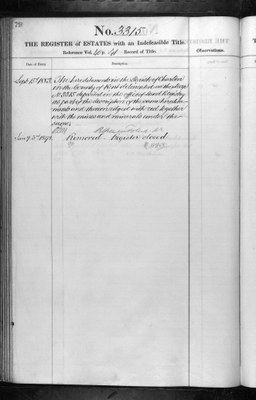 70
No. 3315
THE REGISTER of ESTATES with an Indefeasible Title.
Reference Vol. Record of Title.
Observations.
Date of Entry.
Description.
Sept 15th 1873 Hereditaments in the Parish of Charlton
in the County of Kent delineated on the Map
No 3315 deposited in the office of Land Registry
as part of the description of the same heredita-
ments and thereon edged with red together
with the mines and minerals under the
same
Removed Register closed